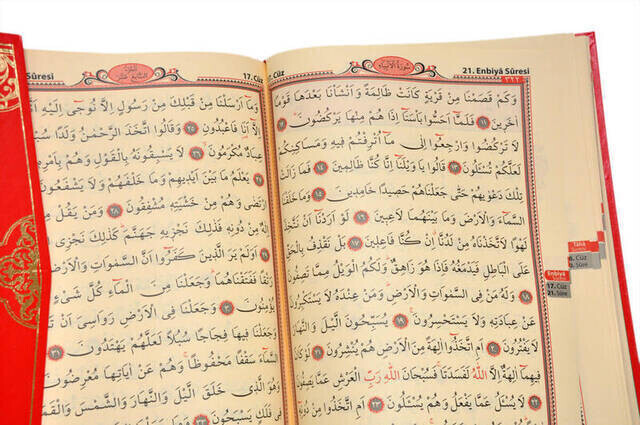 سُورَةُ الْاَنْبِيَاءِ
21. Enbiyâ Sûresi
وَكَمْ قَصَمْنَا مِنْ قَرْيَةٍ كَانَتْ ظَالِمَةً وَاَنْشَأْنَا بَعْدَهَا قَوْمًا
اٰخَرِينَ ١١ فَلَمَّا اَحَسُّوا بَأْسَنَا اِذَا هُمْ مِنْهَا يَرْكُضُونَ ١٢
لَا تَرْكُضُوا وَارْجِعُوا اِلٰى مَا اُتْرِفْتُمْ فِيهِ وَمَسَاكِنِكُمْ
لَعَلَّكُمْ تُسْئَلُونَ ١٣ قَالُوا يَا وَيْلَنَا اِنَّا كُنَّا ظَالِمِينَ ١٤ فَمَا زَالَتْ
تِلْكَ دَعْوٰيهُمْ حَتّٰى جَعَلْنَاهُمْ حَصِيدًا خَامِدِينَ ١٥ وَمَا خَلَقْنَا
السَّمَاءَ وَالْاَرْضَ وَمَا بَيْنَهُمَا لَاعِبِينَ ١٦ لَوْ اَرَدْنَا اَنْ نَتَّخِذَ
لَهْوًا لَاتَّخَذْنَاهُ مِنْ لَدُنَّا اِنْ كُنَّا فَاعِلِينَ ١٧ بَلْ نَقْذِفُ بِالْحَقِّ
عَلَى الْبَاطِلِ فَيَدْمَغُهُ فَاِذَا هُوَ زَاهِقٌ وَلَكُمُ الْوَيْلُ مِمَّا تَصِفُونَ
١٨ وَلَهُ مَنْ فِي السَّمٰوَاتِ وَالْاَرْضِ وَمَنْ عِنْدَهُ لَا يَسْتَكْبِرُونَ
عَنْ عِبَادَتِهِ وَلَا يَسْتَحْسِرُونَ ١٩ يُسَبِّحُونَ الَّيْلَ وَالنَّهَارَ
لَا يَفْتُرُونَ ٢٠ اَمِ اتَّخَذُوا اٰلِهَةً مِنَ الْاَرْضِ هُمْ يُنْشِرُونَ ٢١
فِيهِمَا اٰلِهَةٌ اِلَّا اللّٰهُ لَفَسَدَتَا فَسُبْحَانَ اللّٰهِ رَبِّ الْعَرْشِ عَمَّا يَصِفُونَ
٢٢ لَا يُسْئَلُ عَمَّا يَفْعَلُ وَهُمْ يُسْئَلُونَ ٢٣ اَمِ اتَّخَذُوا مِنْ دُونِهِ
Tâhâ
Enbiyâ
17. Cüz
21. Sûre
Sûresi
اَلْجُزْءُ السَّابِعَ عَشَرَ
17. Cüz
وَمَا اَرْسَلْنَا مِنْ قَبْلِكَ مِنْ رَسُولٍ اِلَّا نُوحِى اِلَيْهِ
اِلَّا اَنَا فَاعْبُدُونِ ٢٥ وَقَالُوا اتَّخَذَ الرَّحْمٰنُ وَلَدًا
عِبَادٌ مُكْرَمُونَ ٢٦ لَا يَسْبِقُونَهُ بِالْقَوْلِ وَهُمْ بِاَمْرِهِ
٢٧ يَعْلَمُ مَا بَيْنَ اَيْدِيهِمْ وَمَا خَلْفَهُمْ وَلَا يَشْفَعُونَ
ارْتَضٰى وَهُمْ مِنْ خَشْيَتِهِ مُشْفِقُونَ ٢٨ وَمَنْ يَقُلْ
مِنْ دُونِهِ فَذٰلِكَ نَجْزِيهِ جَهَنَّمَ كَذٰلِكَ نَجْزِى
٢٩ اَوَلَمْ يَرَ الَّذِينَ كَفَرُوا اَنَّ السَّمٰوَاتِ وَالْاَرْضَ
رَتْقًا فَفَتَقْنَاهُمَا وَجَعَلْنَا مِنَ الْمَاءِ كُلَّ شَيْءٍ
يُؤْمِنُونَ ٣٠ وَجَعَلْنَا فِي الْاَرْضِ رَوَاسِيَ اَنْ
وَجَعَلْنَا فِيهَا فِجَاجًا سُبُلًا لَعَلَّهُمْ يَهْتَدُونَ ٣١
السَّمَاءَ سَقْفًا مَحْفُوظًا وَهُمْ عَنْ اٰيَاتِهَا مُعْرِضُونَ
وَهُوَ الَّذِي خَلَقَ الَّيْلَ وَالنَّهَارَ وَالشَّمْسَ وَالْقَمَرَ
فِي فَلَكٍ يَسْبَحُونَ ٣٣